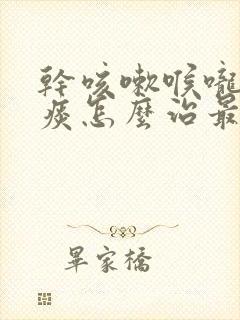 幹咳嗽喉嚨
痰怎麼治最
畢家橋